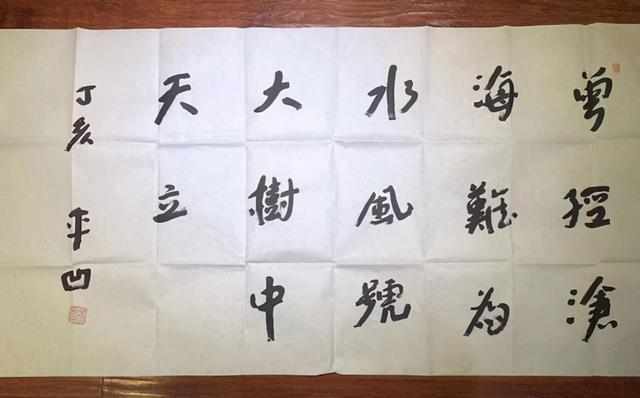 曾經滄
海難為
水風號
大樹中
天立
丁亥 平凹